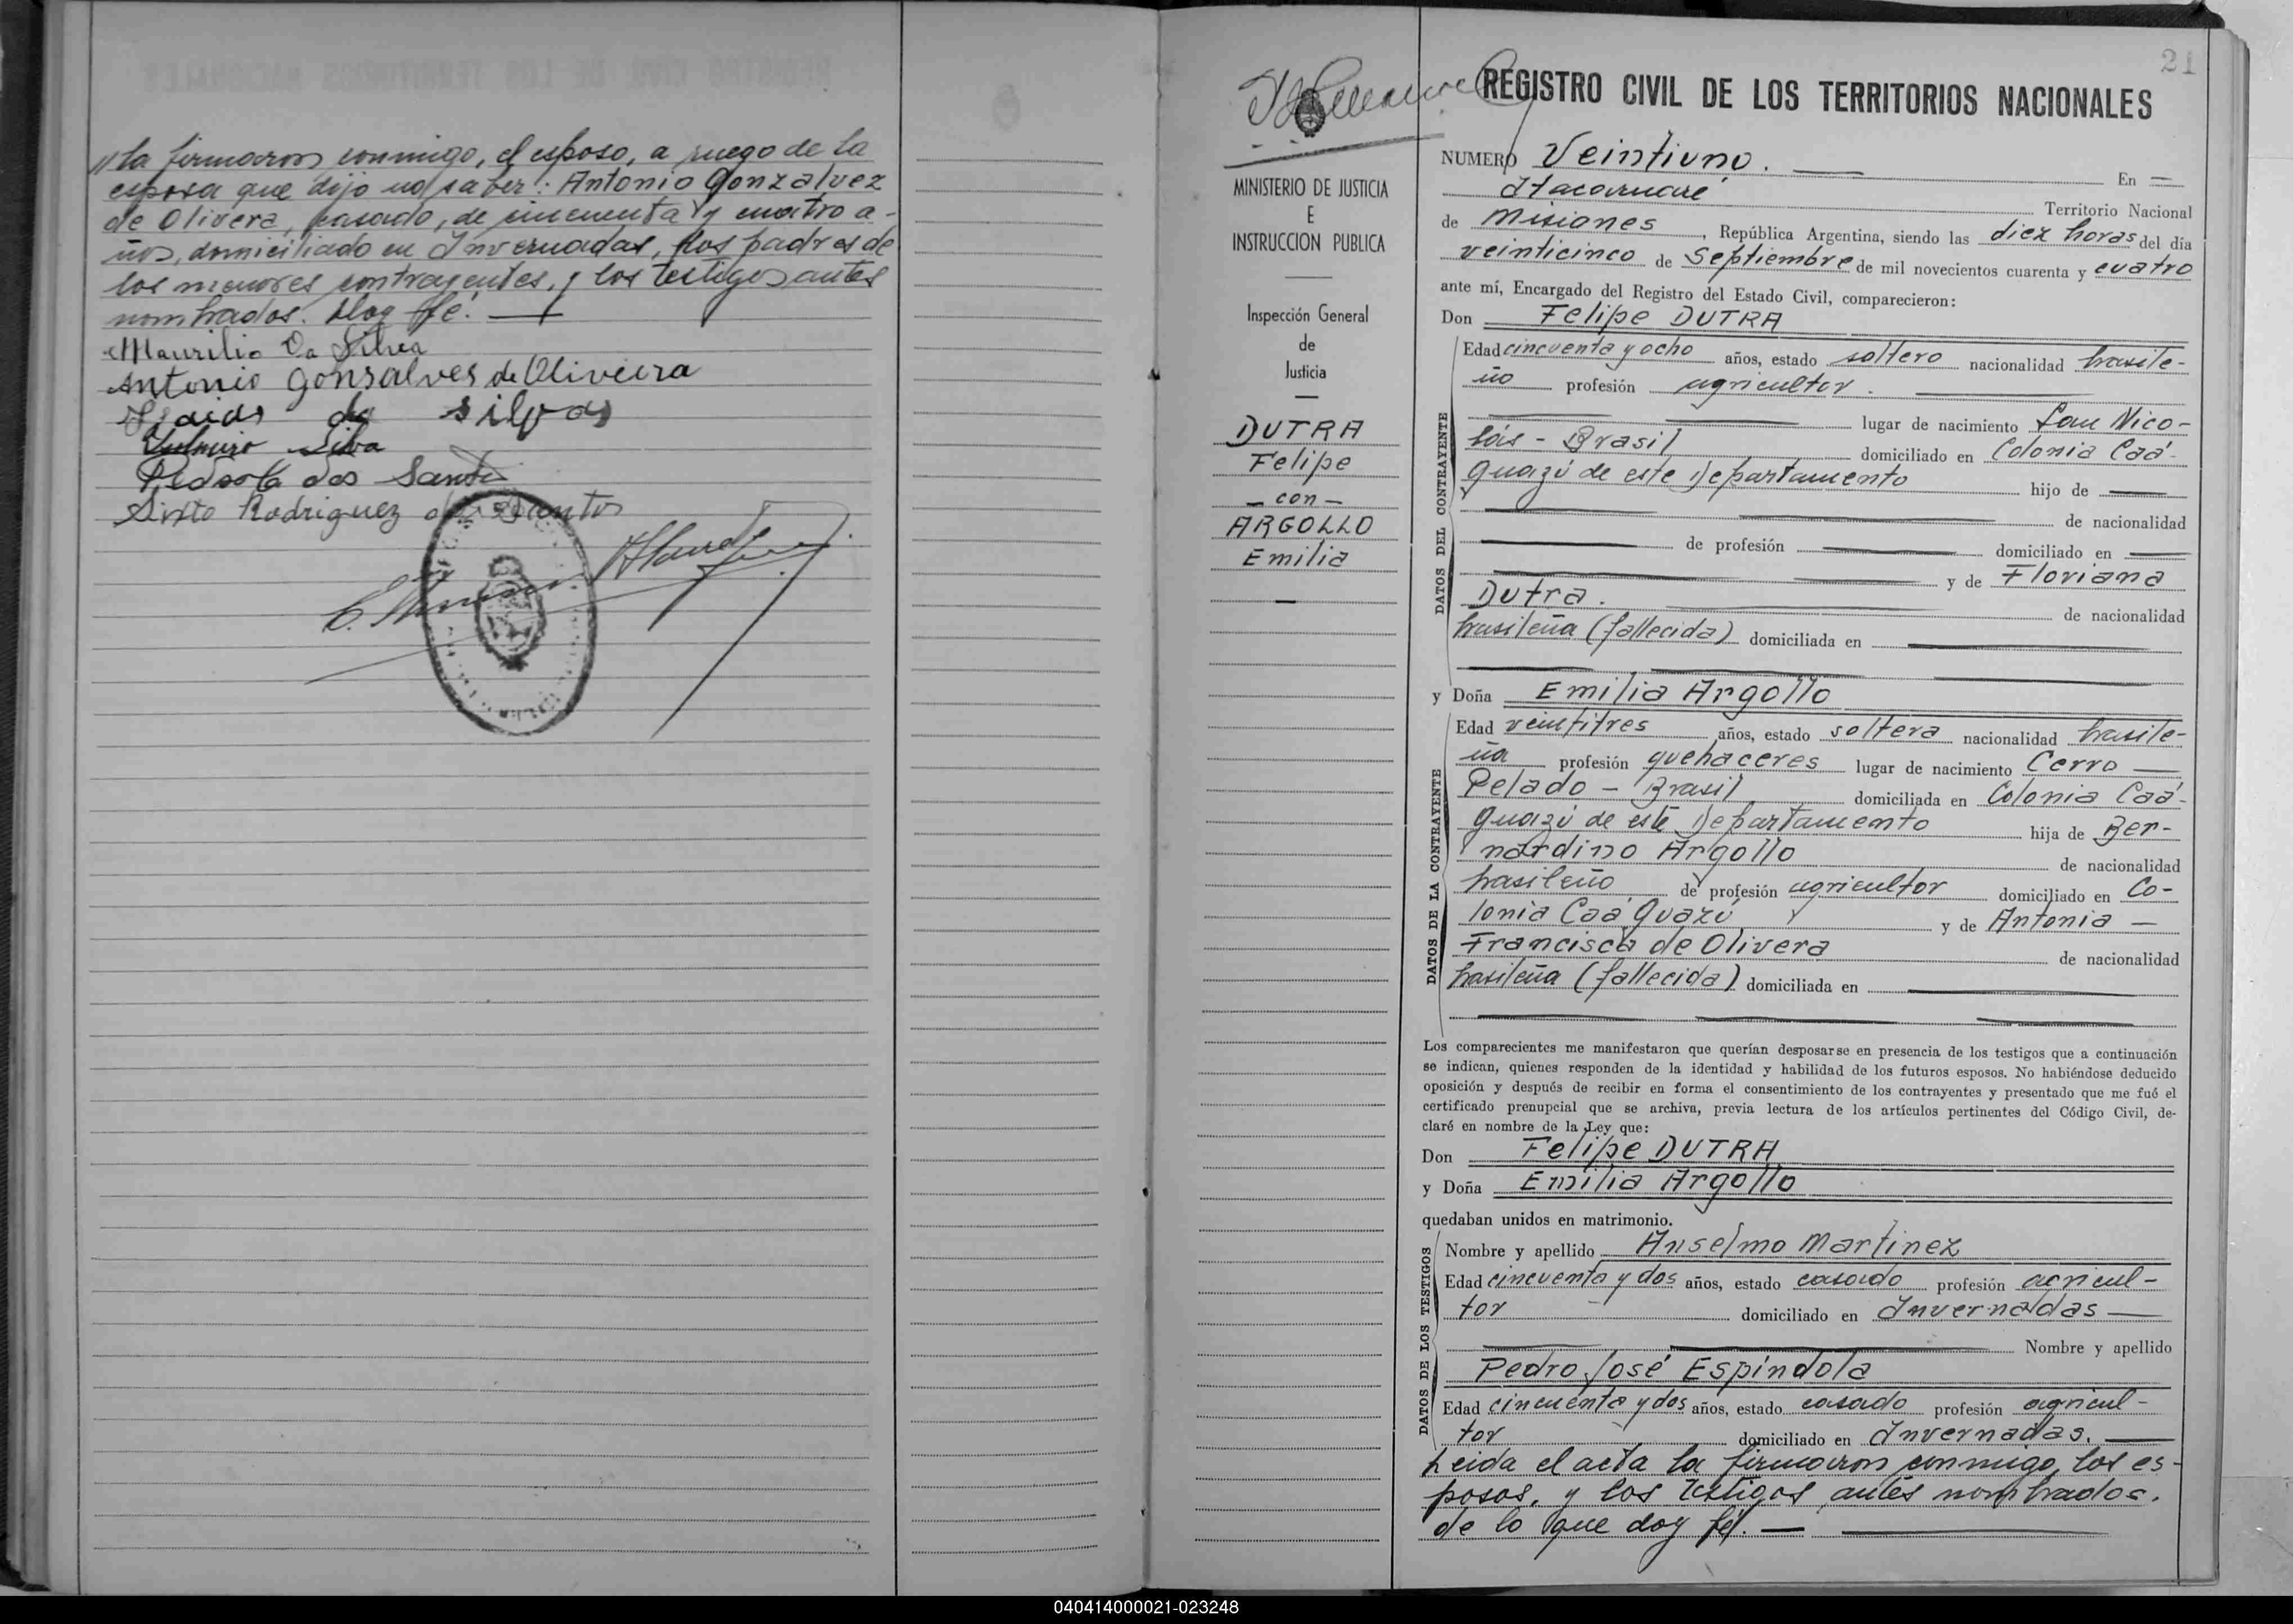 // la firmaron conmigo, el esposo, a ruego de la
esposa que dijo no saber: Antonio Gonzalvez
de Olivera, casado, de cincuenta y cuatro a-
ños, domiciliado en Invernadas, los padres de
los menores contrayentes, y los testigos antes
nombrados. Doy fé. —
Maurilio Da Silva
Antonio Gonsalves de Oliveira
da silvas
Silva
dos Santos
Sixto Rodriguez dos Santos
21
REGISTRO CIVIL DE LOS TERRITORIOS NACIONALES
MINISTERIO DE JUSTICIA
E
INSTRUCCION PUBLICA
Inspección General
de
Justicia
DUTRA
Felipe
— con —
ARGOLLO
Emilia
—
NUMERO Veintiuno. — En —
Itacaruaré Territorio Nacional
de Misiones, República Argentina, siendo las diez horas del día
veinticinco de Septiembre de mil novecientos cuarenta y cuatro
ante mí, Encargado del Registro del Estado Civil, comparecieron:
Don Felipe DUTRA
DATOS DEL CONTRAYENTE
Edad cincuenta y ocho años, estado soltero nacionalidad brasile-
ño profesión agricultor.
lugar de nacimiento San Nico-
lás - Brasil domiciliado en Colonia Caá-
guazú de este Departamento hijo de —
de nacionalidad
— de profesión — domiciliado en —
y de Floriana
Dutra. de nacionalidad
brasileña (fallecida) domiciliada en —
y Doña Emilia Argollo
DATOS DE LA CONTRAYENTE
Edad veintitres años, estado soltera nacionalidad brasile-
ña profesión quehaceres lugar de nacimiento Cerro —
Pelado - Brasil domiciliada en Colonia Caá-
guazú de este Departamento hija de Ber-
nardino Argollo de nacionalidad
brasileño de profesión agricultor domiciliado en Co-
lonia Caá Guazú y de Antonia —
Francisca de Olivera de nacionalidad
brasileña (fallecida) domiciliada en —
Los comparecientes me manifestaron que querían desposarse en presencia de los testigos que a continuación
se indican, quienes responden de la identidad y habilidad de los futuros esposos. No habiéndose deducido
oposición y después de recibir en forma el consentimiento de los contrayentes y presentado que me fué el
certificado prenupcial que se archiva, previa lectura de los artículos pertinentes del Código Civil, de-
claré en nombre de la Ley que:
Don Felipe DUTRA
y Doña Emilia Argollo
quedaban unidos en matrimonio.
DATOS DE LOS TESTIGOS
Nombre y apellido Anselmo Martinez
Edad cincuenta y dos años, estado casado profesión agricul-
tor domiciliado en Invernadas —
Nombre y apellido
Pedro José Espíndola
Edad cincuenta y dos años, estado casado profesión agricul-
tor domiciliado en Invernadas. —
Leida el acta la firmaron conmigo, los es-
posos, y los testigos antes nombrados,
de lo que doy fé. —
040414000021-023248